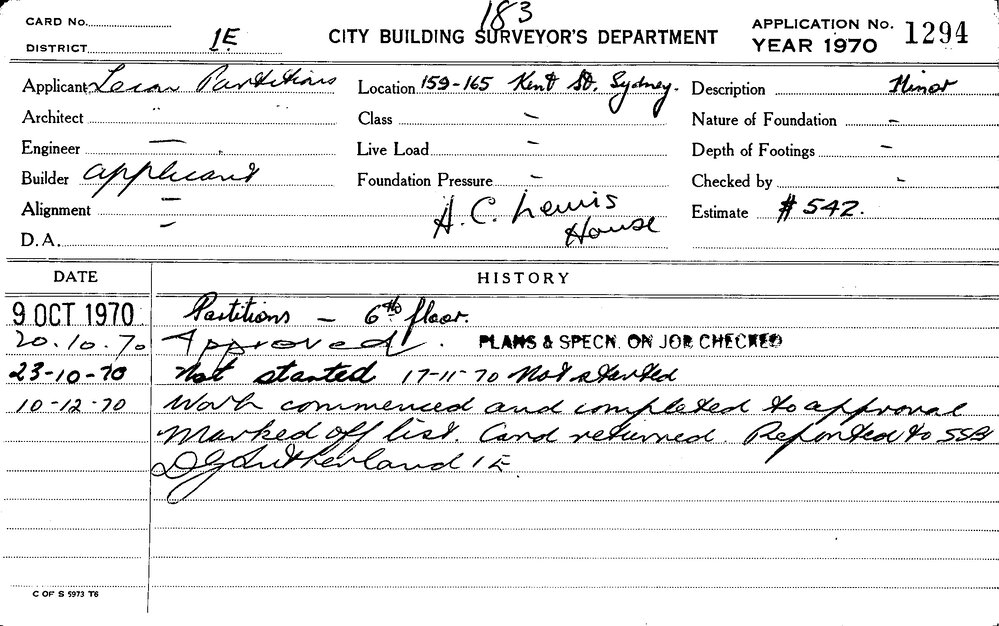 183
CARD No.
DISTRICT 1E
CITY BUILDING SURVEYOR'S DEPARTMENT
APPLICATION No. 1294
YEAR 1970
Applicant Partitions
Location 159-165 Kent St, Sydney.
Description Minor
Architect
Class -
Nature of Foundation -
Engineer —
Live Load -
Depth of Footings -
Builder applicant
Foundation Pressure -
Checked by -
Alignment —
H.C. Lewis
House
Estimate $ 542.
D.A. —
DATE HISTORY
9 OCT 1970 Partitions — 6th floor.
20.10.70 Approved. PLANS & SPECN. ON JOB CHECKED
23-10-70 Not started 17-11-70 Not started
10-12-70 Work commenced and completed to approval
Marked off list. Card returned. Reported to
DG Sutherland 1E
C OF S 5973 T6